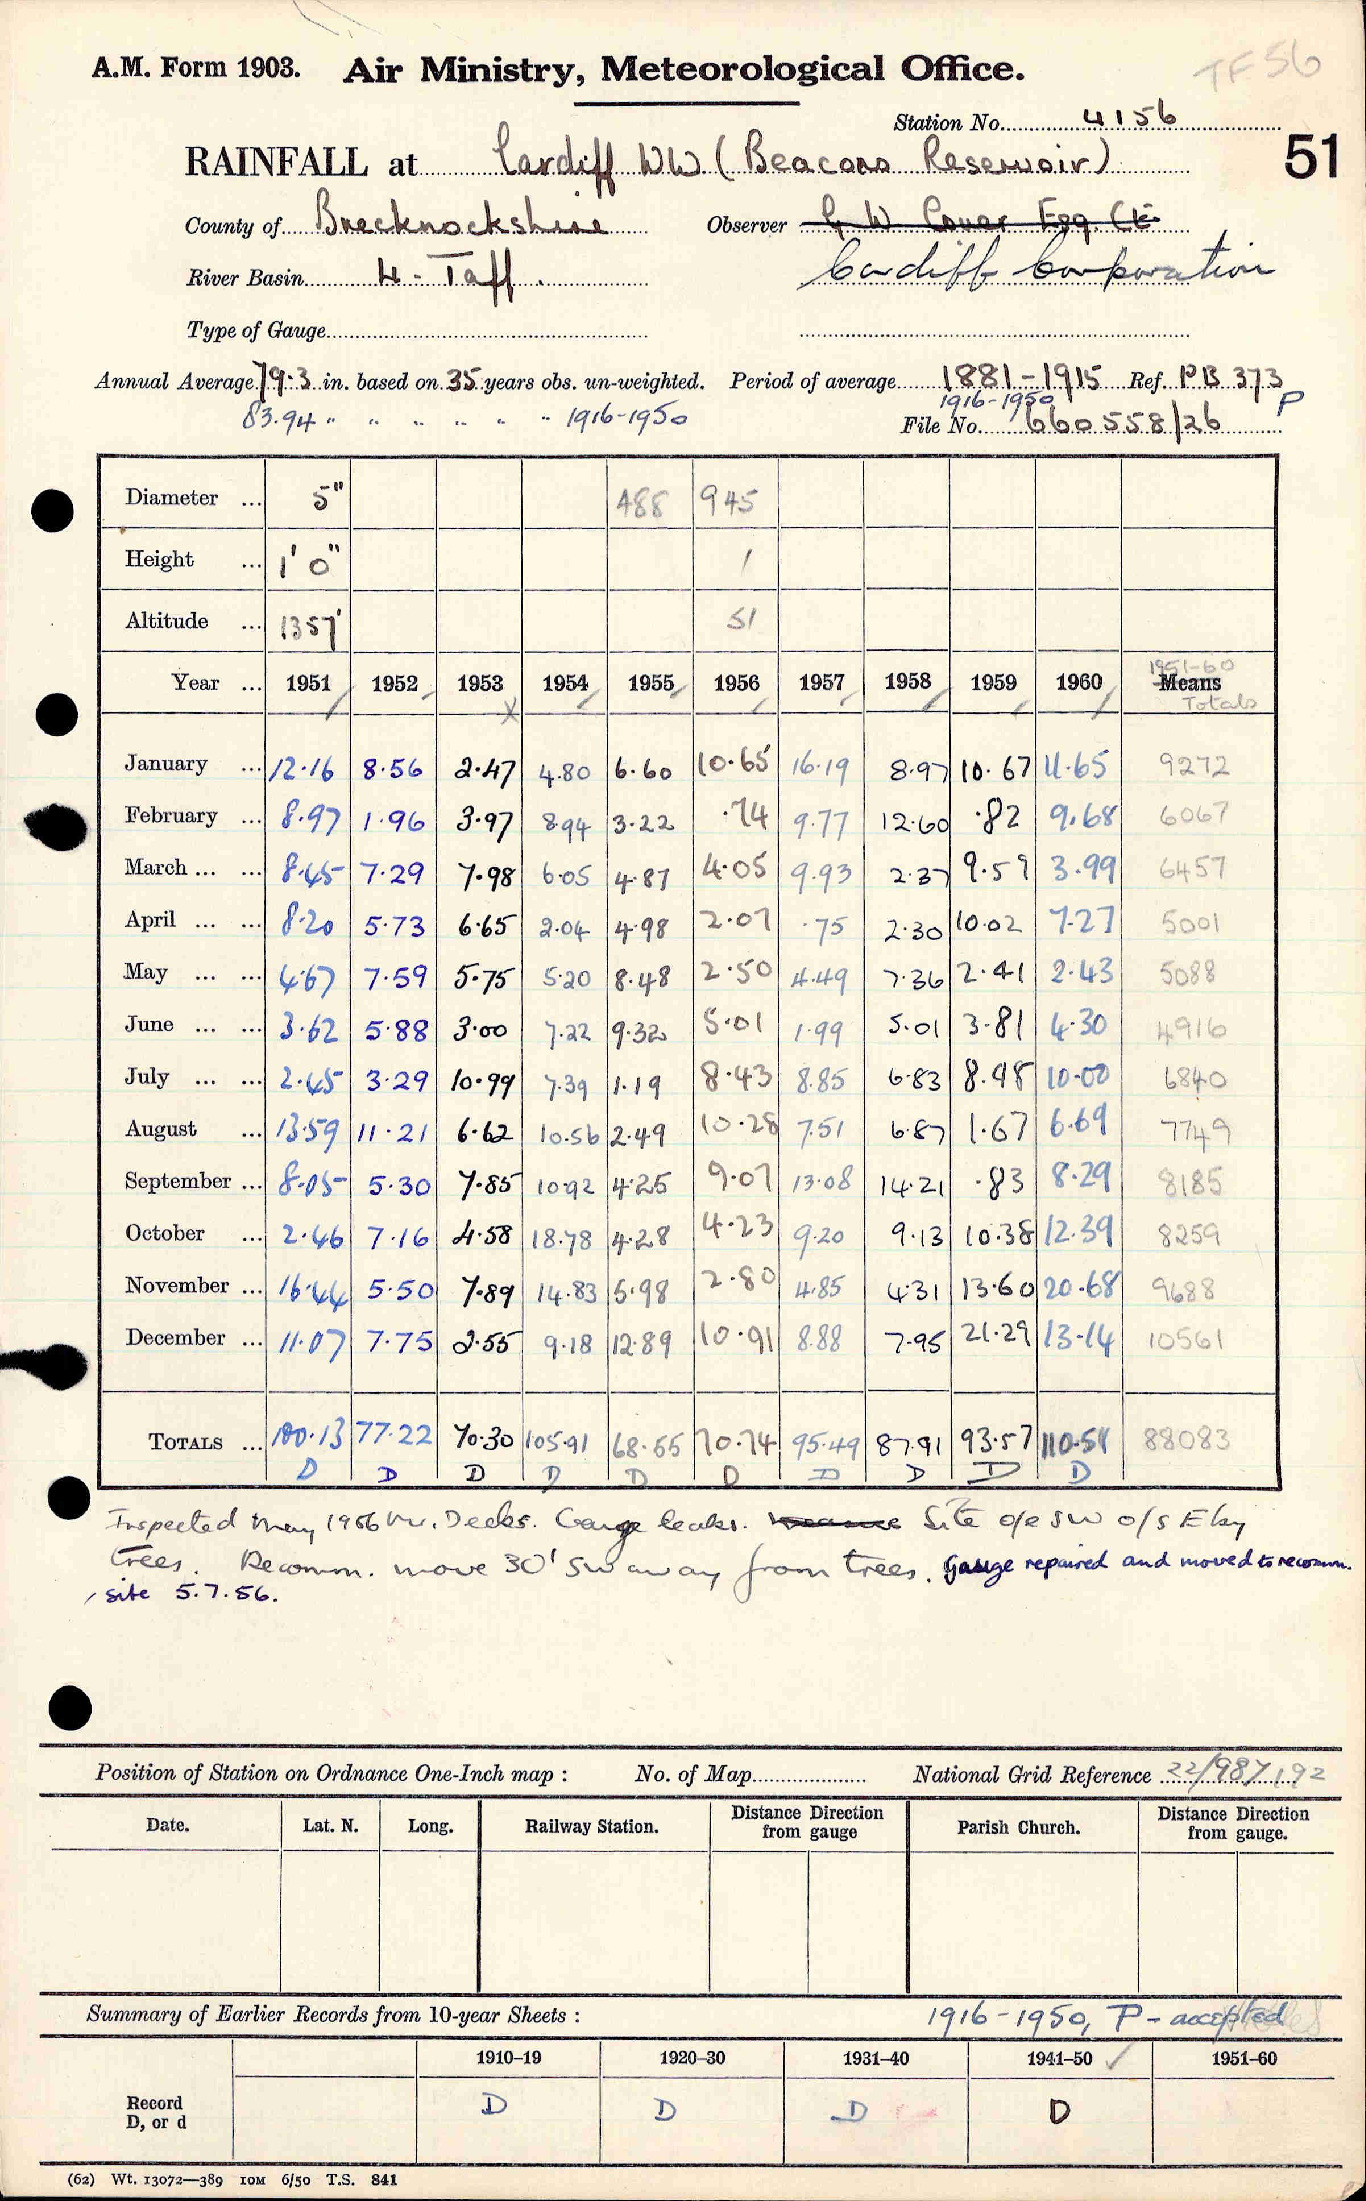 TF 56
A.M. Form 1903. Air Ministry, Meteorological Office.
Station No. 4156
RAINFALL at Cardiff WW (Beacons Reservoir) 51
County of Brecknockshire Observer G W Esq. CE
River Basin 4 - Taff. Cardiff Corporation
Type of Gauge
Annual Average 79.3 in. based on 35 years obs. un-weighted. Period of average 1881-1915 Ref. PB 373
83.94 " " " " " " 1916-1950 1916-1950 P
File No. 660558/26
Diameter ... 5" 488 945
Height ... 1' 0" 1
Altitude ... 1357' 51
Year ... 1951 1952 1953 1954 1955 1956 1957 1958 1959 1960 1951-60 Means Totals
January ... 12.16 8.56 2.47 4.80 6.60 10.65 16.19 8.97 10.67 11.65 9272
February ... 8.97 1.96 3.97 8.94 3.22 .74 9.77 12.60 .82 9.68 6067
March ... ... 8.45 7.29 7.98 6.05 4.87 4.05 9.93 2.37 9.59 3.99 6457
April ... ... 8.20 5.73 6.65 2.04 4.98 2.07 .75 2.30 10.02 7.27 5001
May ... ... 4.67 7.59 5.75 5.20 8.48 2.50 4.49 7.36 2.41 2.43 5088
June ... ... 3.62 5.88 3.00 7.22 9.32 5.01 1.99 5.01 3.81 4.30 4916
July ... ... 2.45 3.29 10.99 7.39 1.19 8.43 8.85 6.83 8.98 10.00 6840
August ... 13.59 11.21 6.62 10.56 2.49 10.28 7.51 6.87 1.67 6.69 7749
September ... 8.05 5.30 7.85 10.92 4.25 9.07 13.08 14.21 .83 8.29 8185
October ... 2.46 7.16 4.58 18.78 4.28 4.23 9.20 9.13 10.38 12.39 8259
November ... 16.44 5.50 7.89 14.83 5.98 2.80 4.85 4.31 13.60 20.68 9688
December ... 11.07 7.75 2.55 9.18 12.89 10.91 8.88 7.95 21.29 13.14 10561
TOTALS ... 100.13 77.22 70.30 105.91 68.55 70.74 95.49 87.91 93.57 110.51 88083
D D D D D D D D D D
Inspected May 1956 Mr. Decks. Gauge leaks. Site o/e SW o/s E by
trees. Recomm. move 30' SW away from trees. Gauge repaired and moved to recomm.
site 5.7.56.
Position of Station on Ordnance One-Inch map : No. of Map National Grid Reference 22/987192
Date. Lat. N. Long. Railway Station. Distance Direction from gauge Parish Church. Distance Direction from gauge.
Summary of Earlier Records from 10-year Sheets : 1916-1950, P - accepted
1910–19 1920–30 1931–40 1941–50 ✓ 1951–60
Record D, or d D D D D
(62) Wt. 13072—389 10M 6/50 T.S. 841